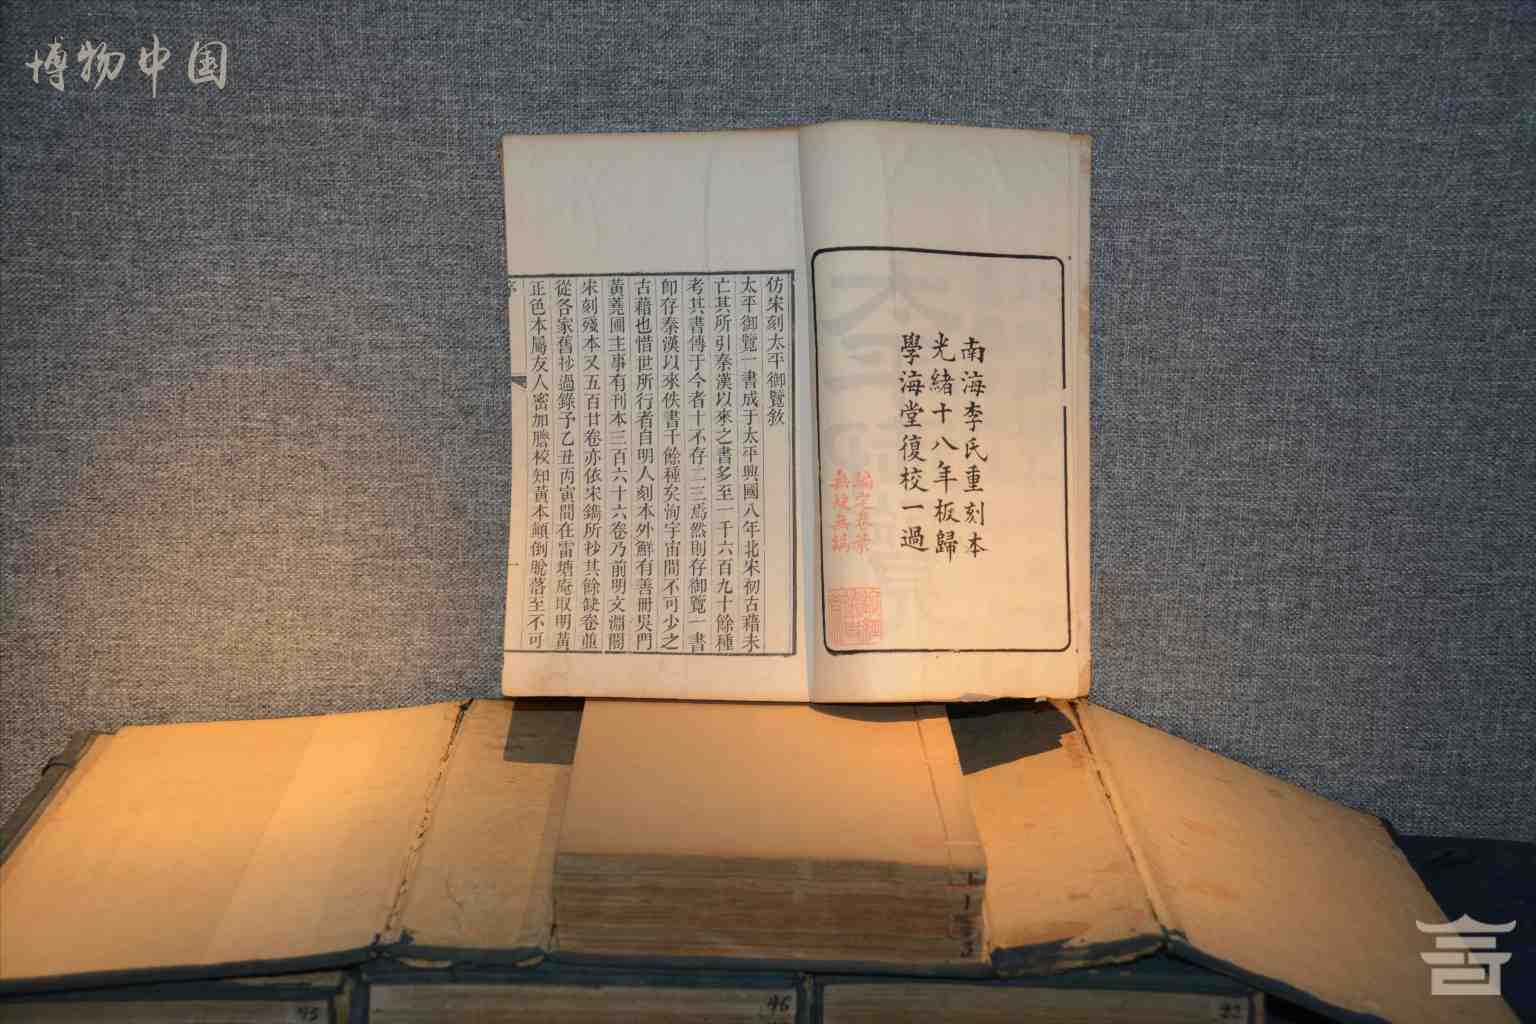 博物中国
南海李氏重刻本
光緒十八年板歸
學海堂復校一過
編定卷葉
無缺無譌
仿宋刻太平御覽敘
太平御覽一書成于太平興國八年北宋初古籍未
亡其所引秦漢以來之書多至一千六百九十餘種
考其書傳于今者十不存二三焉然則存御覽一書
卽存秦漢以來佚書千餘種矣洵宇宙間不可少之
古籍也惜世所行者自明人刻本外鮮有善冊吳門
黃蕘圃主事有刊本三百六十六卷乃前明文淵閣
宋刻殘本又五百廿卷亦依宋鐫所抄其餘缺卷並
從各家舊抄過錄予乙丑丙寅間在雷塘庵取明黃
正色本屬友人密加謄校知黃本顛倒脫落至不可
序
一
46